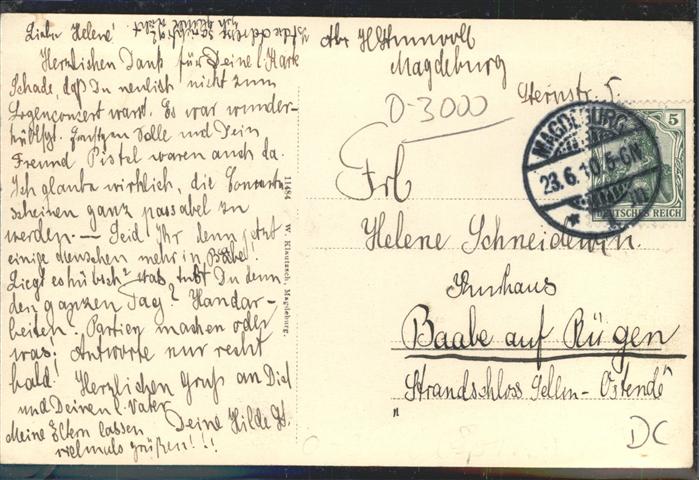 Liebe Helene!
Herzlichen Dank für Deine l. Karte
Schade, daß Du neulich nicht zum
Logenconzert warst. Es war wunder-
hübsch. Tolle und Dein
Freund Pistel waren auch da.
Ich glaube wirklich, die Concerte
scheinen ganz passabel zu
werden. — Seid Ihr denn jetzt
einige Menschen mehr in
Liegt es hübsch? Was tust Du denn
den ganzen Tag? Handar-
beiten? Partien machen oder
was? Antworte nur recht
bald. Herzlichen Gruß an Dich
und Deinen l. Vater
Deine Hilde
Meine Eltern lassen
vielmals grüßen!!!
11484 W. Klautzsch, Magdeburg.
Abs.
Magdeburg
Sternstr. 5.
D-3000
MAGDEBURG
23.6.10.5-6N.
5
DEUTSCHES REICH
Frl
Helene Schneidewin.
Kurhaus
Baabe auf Rügen
"Strandschloss Sellin-Ostende"
DC